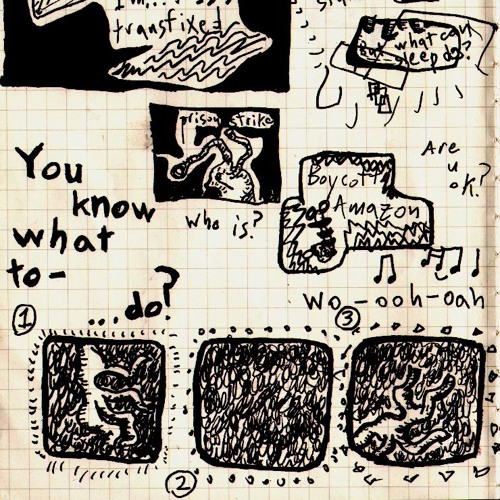 I'm...
transfixed
but what can
sleep do?
prison strike
who is?
Boycott
Amazon
Are
u
ok?
You
know
what
to-
...do?
wo-ooh-oah
1
2
3